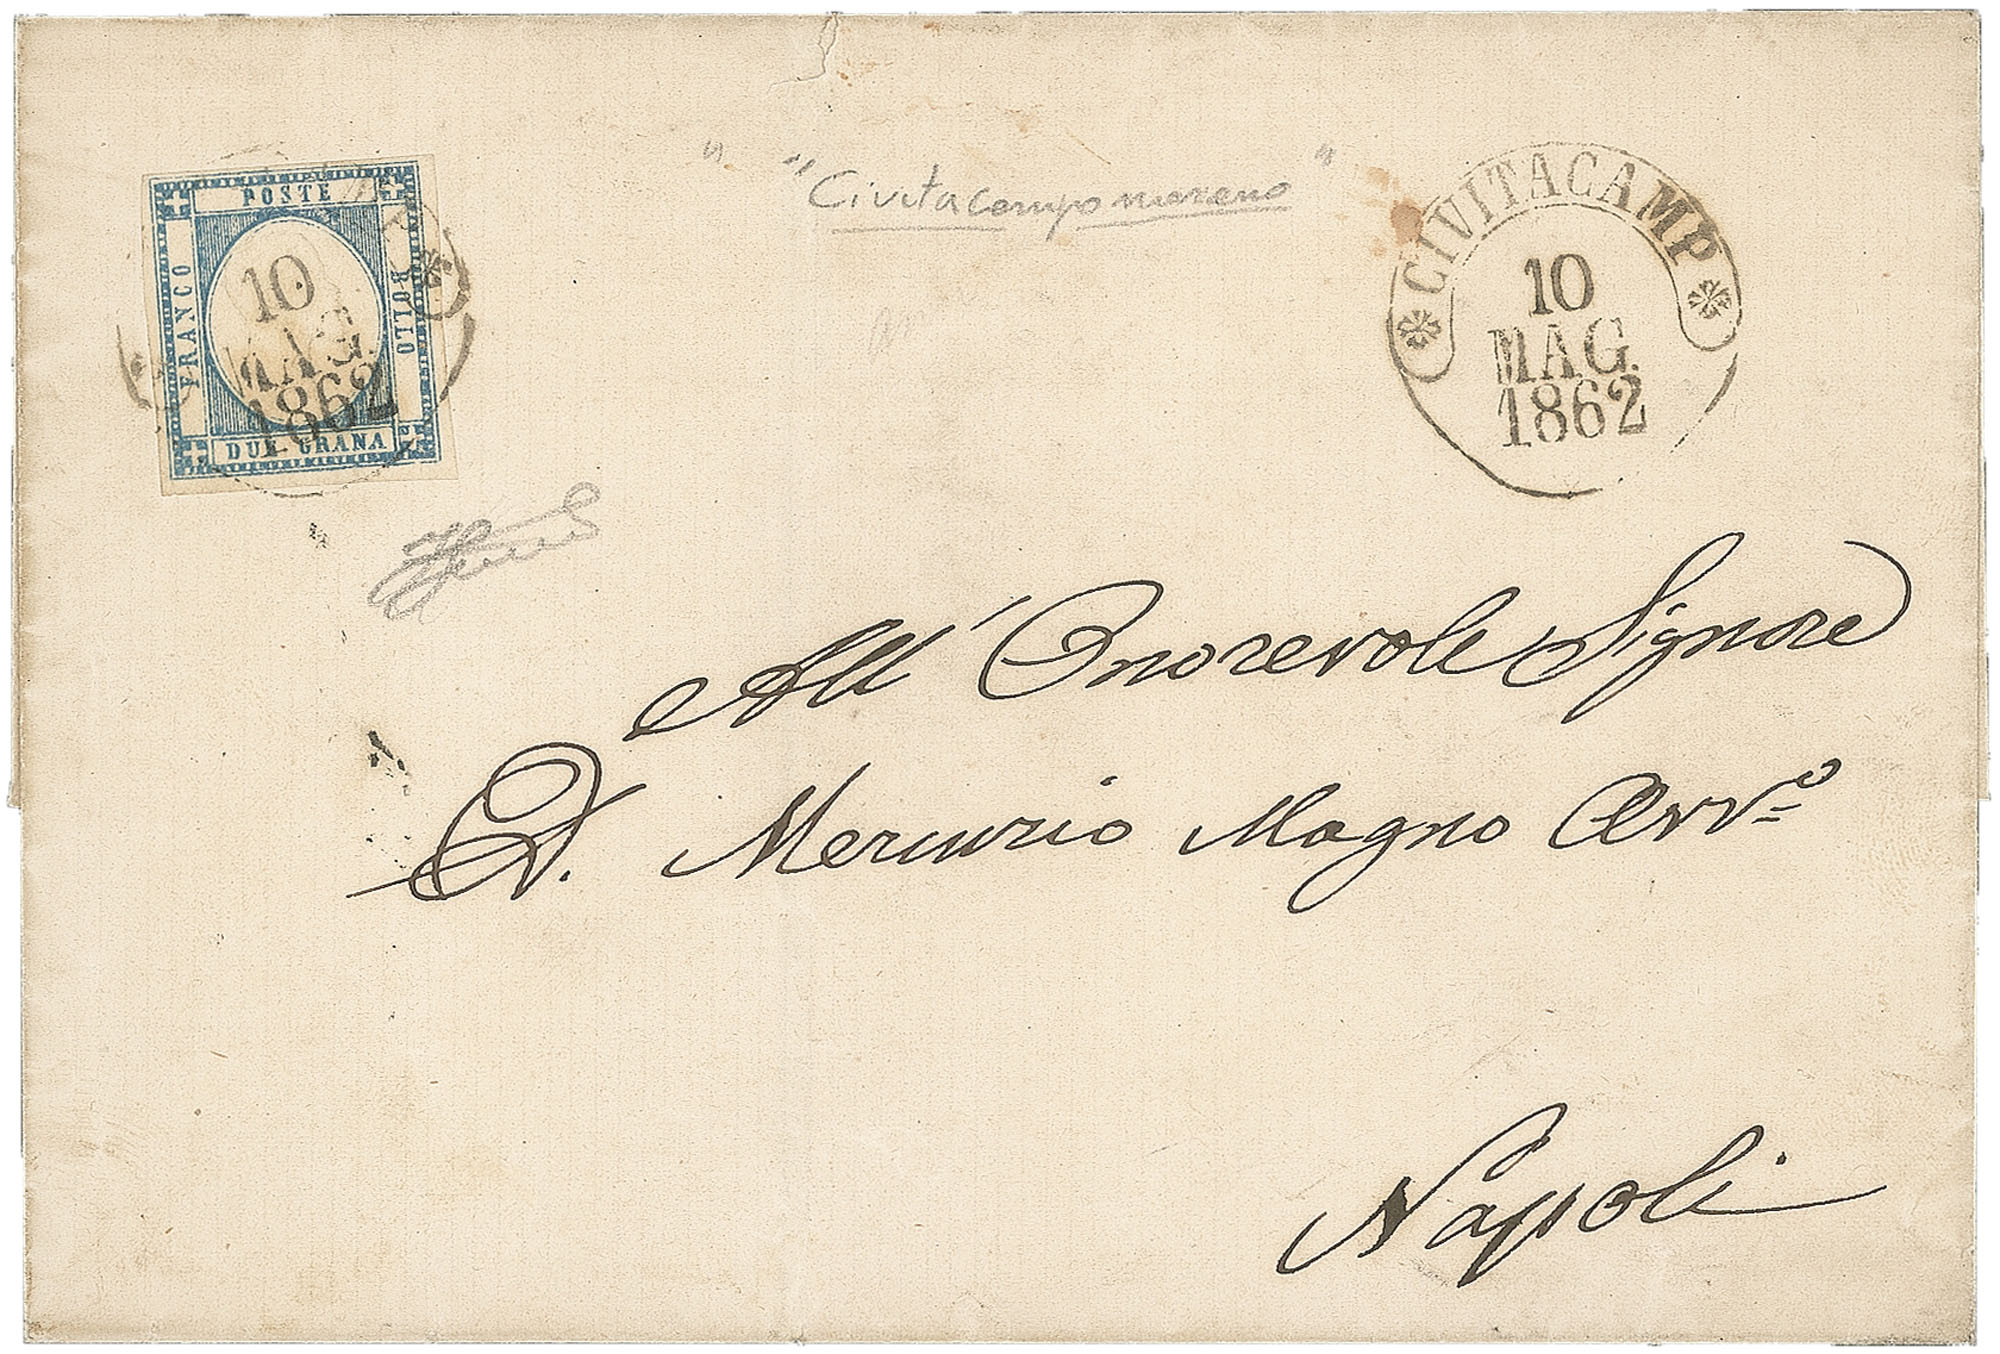 POSTE
FRANCO
BOLLO
DUE GRANA
10
MAG.
1862
" "Civitacampomarano"
CIVITACAMP
10
MAG.
1862
All' Onorevole Signore
D. Mercurio Magno Avv.º
Napoli